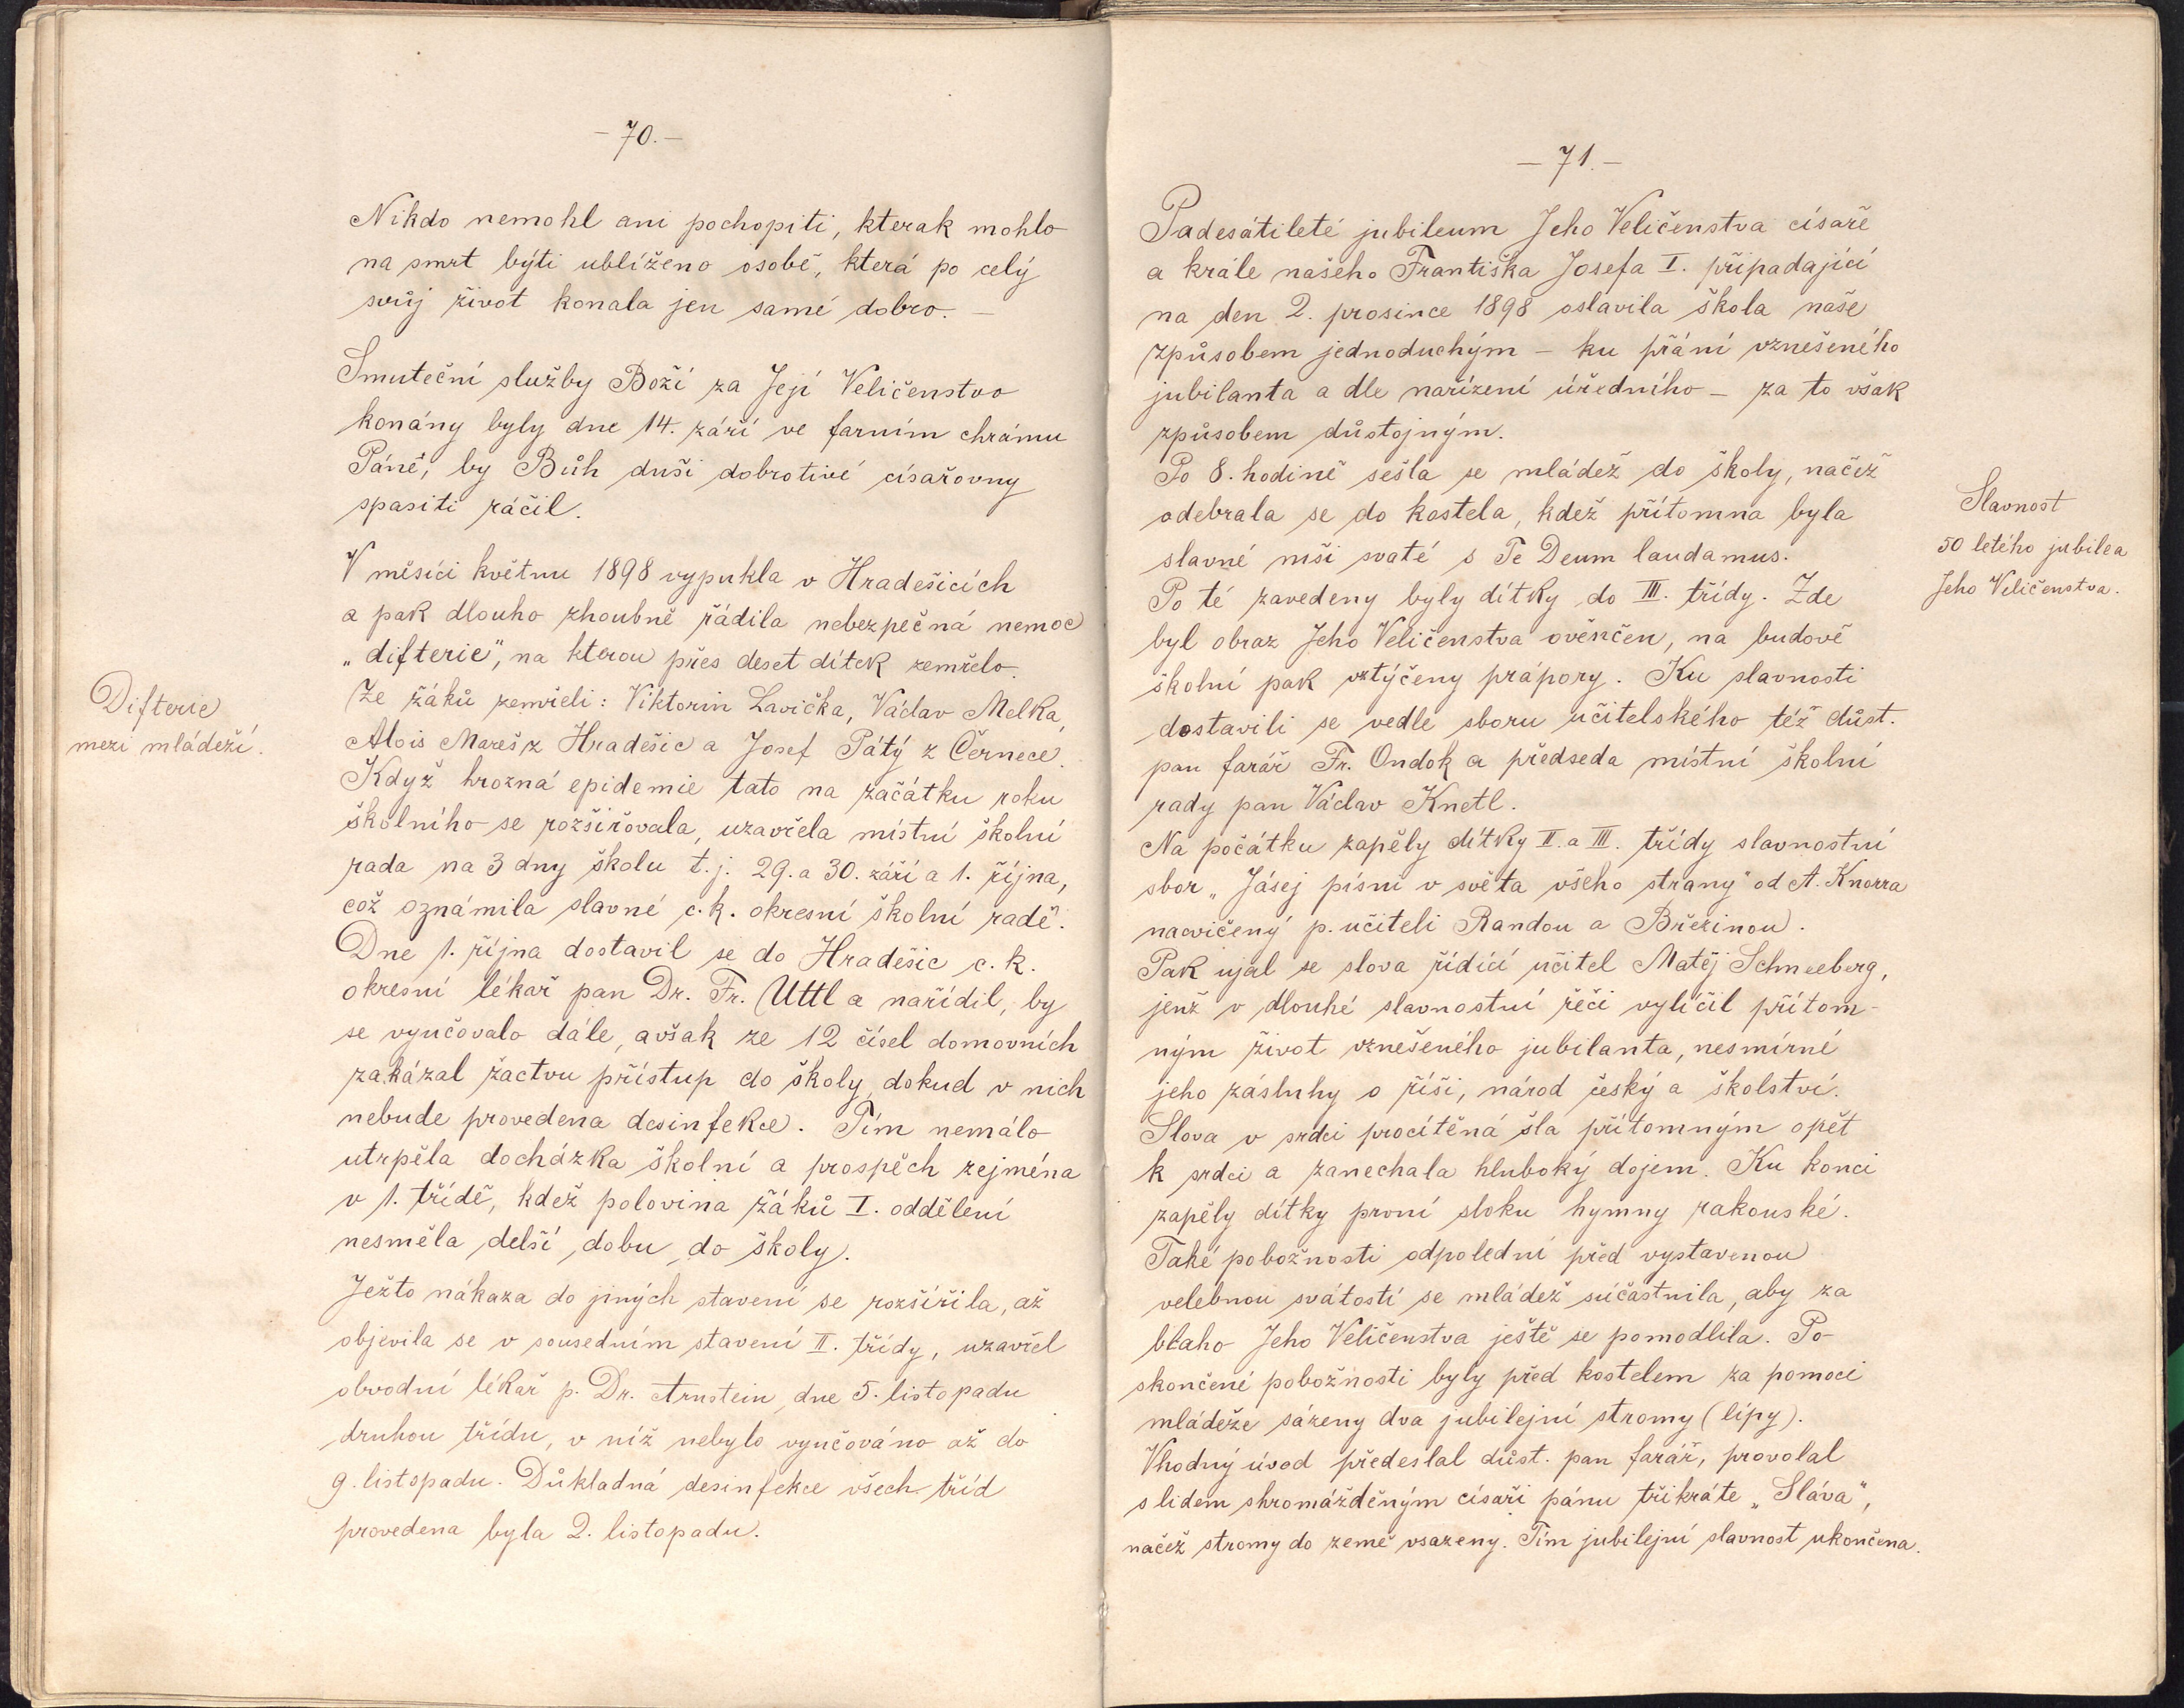 – 70. –
Nikdo nemohl ani pochopiti, kterak mohlo
na smrt býti ublíženo osobě, která po celý
svůj život konala jen samé dobro. –
Smuteční služby Boží za Její Veličenstvo
konány byly dne 14. září ve farním chrámu
Páně, by Bůh duši dobrotivé císařovny
spasiti ráčil.
V měsíci květnu 1898 vypukla v Hradešicích
a pak dlouho zhoubně řádila nebezpečná nemoc
„difterie", na kterou přes deset dítek zemřelo.
Difterie
mezi mládeží.
Ze žáků zemřeli: Viktorin Lavička, Václav Melka,
Alois Mareš z Hradešic a Josef Pátý z Černece.
Když hrozná epidemie tato na začátku roku
školního se rozšiřovala, uzavřela místní školní
rada na 3 dny školu t. j. 29. a 30. září a 1. října,
což oznámila slavné c. k. okresní školní radě.
Dne 1. října dostavil se do Hradešic c. k.
okresní lékař pan Dr. Fr. Uttl a nařídil, by
se vyučovalo dále, avšak ze 12 čísel domovních
zakázal žactvu přístup do školy, dokud v nich
nebude provedena desinfekce. Tím nemálo
utrpěla docházka školní a prospěch zejména
v 1. třídě, kdež polovina žáků I. oddělení
nesměla delší dobu do školy.
Ježto nákaza do jiných stavení se rozšířila, až
objevila se v sousedním stavení II. třídy, uzavřel
obvodní lékař p. Dr. Arnstein dne 5. listopadu
druhou třídu, v níž nebylo vyučováno až do
9. listopadu. Důkladná desinfekce všech tříd
provedena byla 2. listopadu.
– 71. –
Padesátileté jubileum Jeho Veličenstva císaře
a krále našeho Františka Josefa I. připadající
na den 2. prosince 1898 oslavila škola naše
způsobem jednoduchým – ku přání vznešeného
jubilanta a dle nařízení úředního – za to však
způsobem důstojným.
Po 8. hodině sešla se mládež do školy, načež
odebrala se do kostela, kdež přítomna byla
slavné mši svaté s Te Deum laudamus.
Slavnost
50 letého jubilea
Jeho Veličenstva.
Po té zavedeny byly dítky do III. třídy. Zde
byl obraz Jeho Veličenstva ověnčen, na budově
školní pak vztýčeny prápory. Ku slavnosti
dostavili se vedle sboru učitelského též důst.
pan farář Fr. Ondok a předseda místní školní
rady pan Václav Knetl.
Na počátku zapěly dítky II. a III. třídy slavnostní
sbor „Jásej písni v světa všeho strany" od A. Knorra
nacvičený p. učiteli Randou a Březinou.
Pak ujal se slova řídící učitel Matěj Schneeberg,
jenž v dlouhé slavnostní řeči vylíčil přítom-
ným život vznešeného jubilanta, nesmírné
jeho zásluhy o říši, národ český a školství.
Slova v srdci procítěná šla přítomným opět
k srdci a zanechala hluboký dojem. Ku konci
zapěly dítky první sloku hymny rakouské.
Také pobožnosti odpolední před vystavenou
velebnou svátostí se mládež súčastnila, aby za
blaho Jeho Veličenstva ještě se pomodlila. Po
skončené pobožnosti byly před kostelem za pomoci
mládeže sázeny dva jubilejní stromy (lípy).
Vhodný úvod předeslal důst. pan farář, provolal
s lidem shromážděným císaři pánu třikráte „Sláva",
načež stromy do země vsazeny. Tím jubilejní slavnost ukončena.